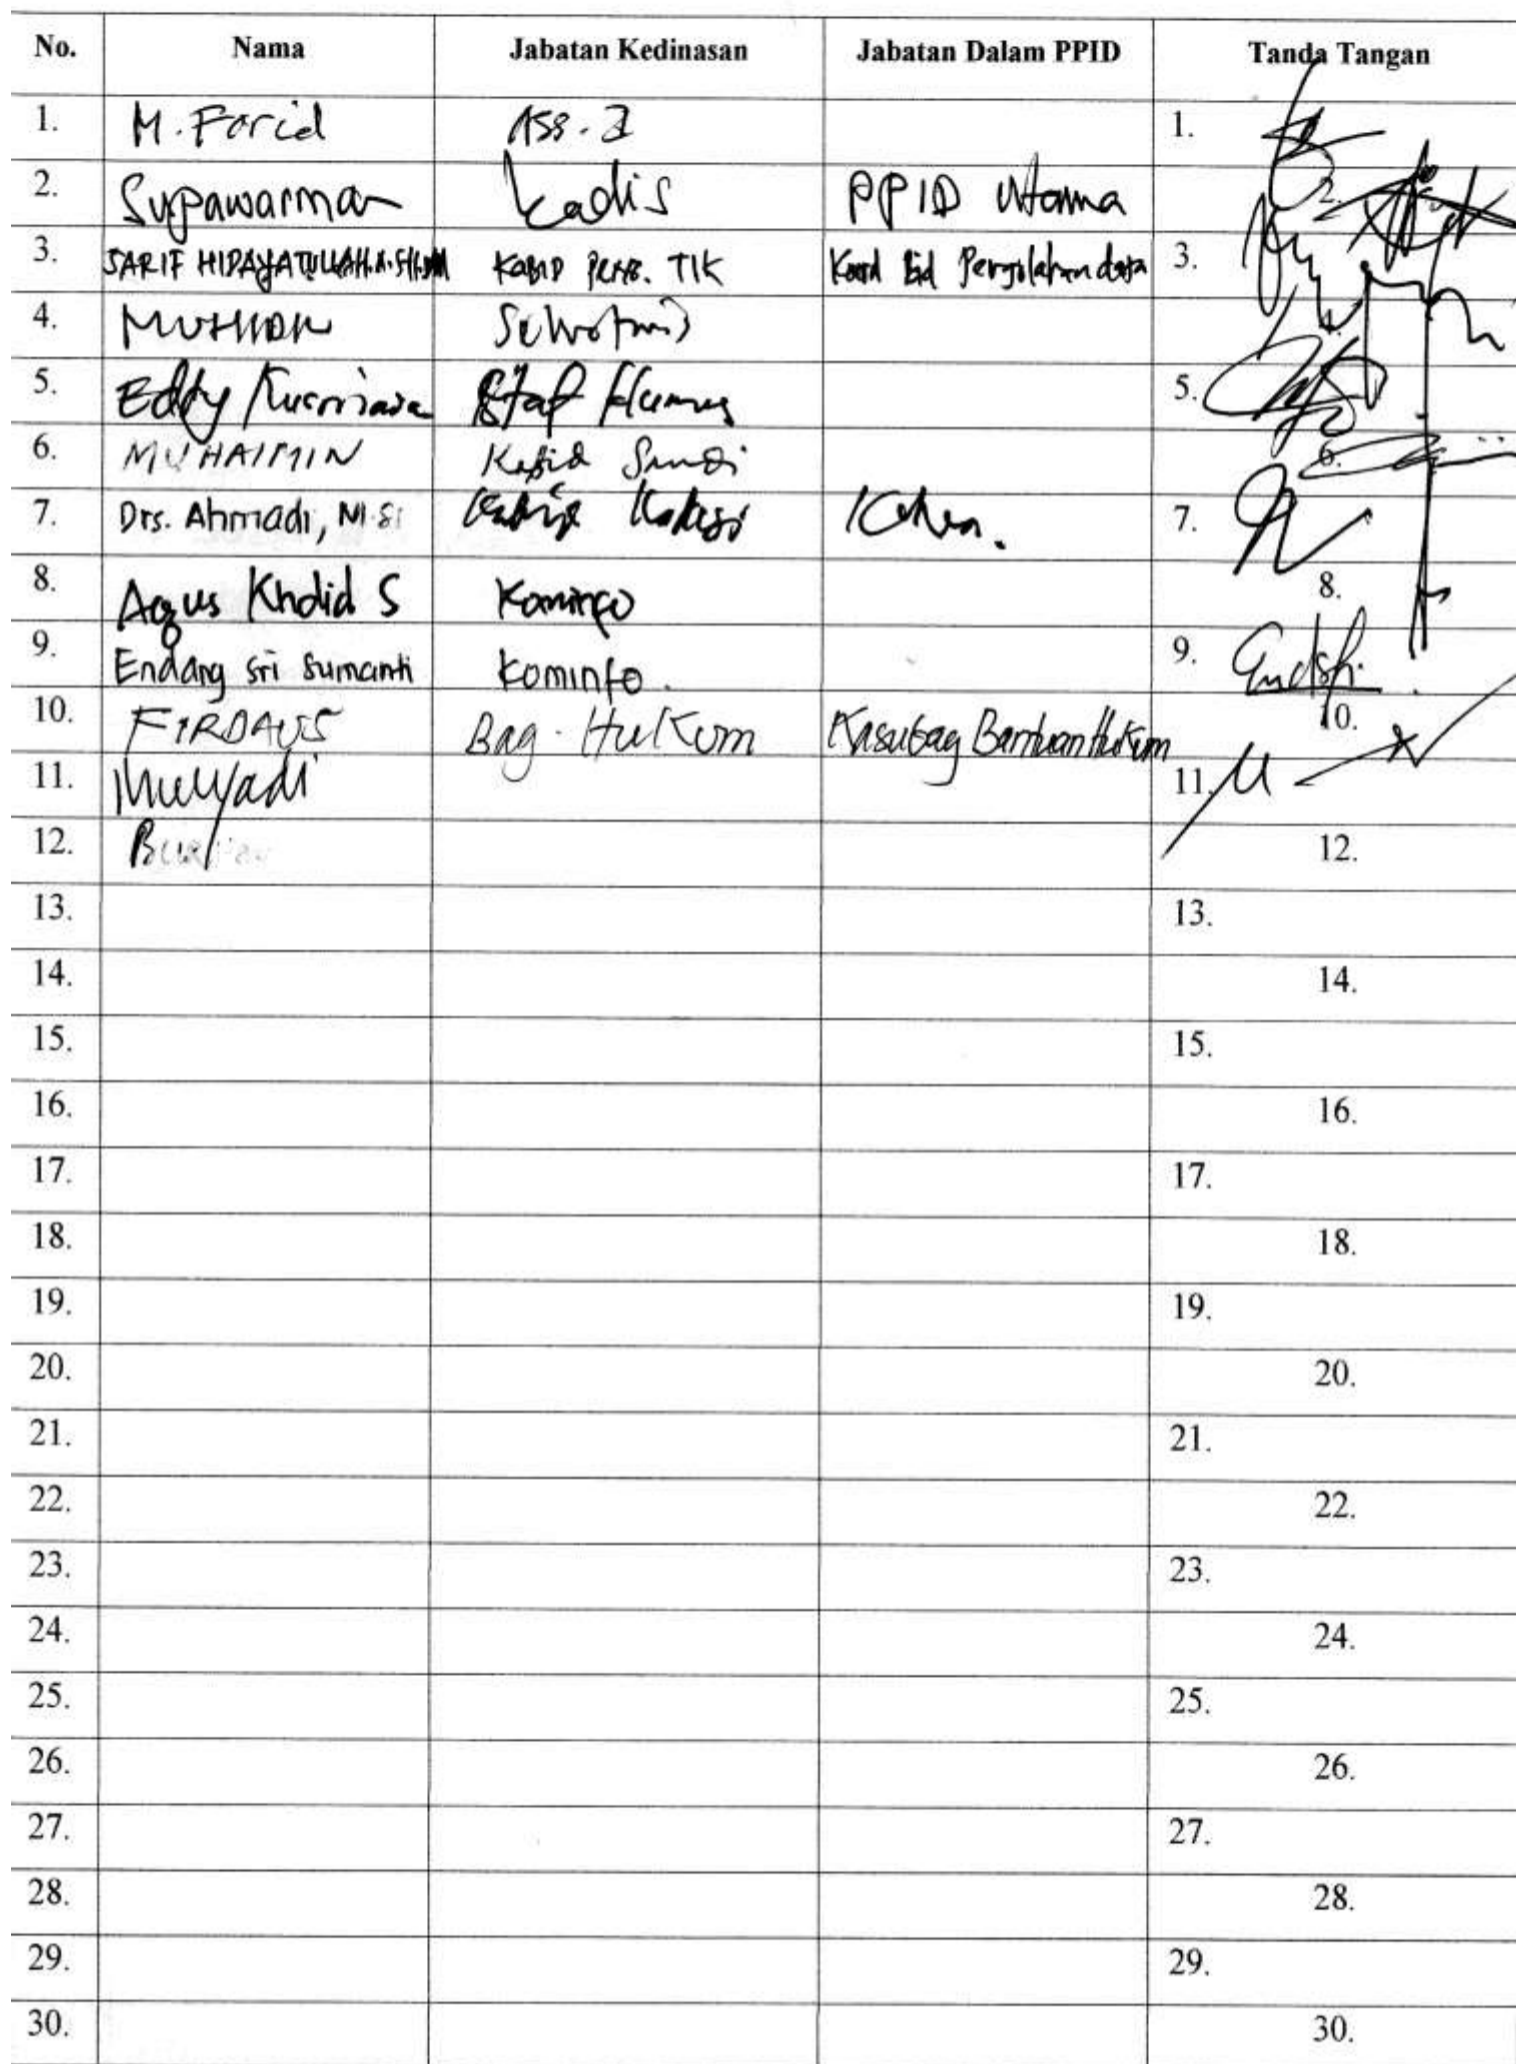 No. Nama Jabatan Kedinasan Jabatan Dalam PPID Tanda Tangan
1. M. Farid Ass. 2 1.
2. Supawarman Kadis PPID Utama 2.
3. SARIF HIDAYATULLAH Kabid TIK Koord Bid Pengolahan data 3.
4. 4.
5. Eddy Kurniawan Staf Humas 5.
6. MUHAIMIN Kabid Sandi 6.
7. Drs. Ahmadi, M.Si 7.
8. Agus Kholid S Kominfo 8.
9. Endang Sri Sumanti Kominfo. 9.
10. FIRDAUS Bag. Hukum Kasubag Bantuan Hukum 10.
11. Mulyadi 11.
12. 12.
13. 13.
14. 14.
15. 15.
16. 16.
17. 17.
18. 18.
19. 19.
20. 20.
21. 21.
22. 22.
23. 23.
24. 24.
25. 25.
26. 26.
27. 27.
28. 28.
29. 29.
30. 30.